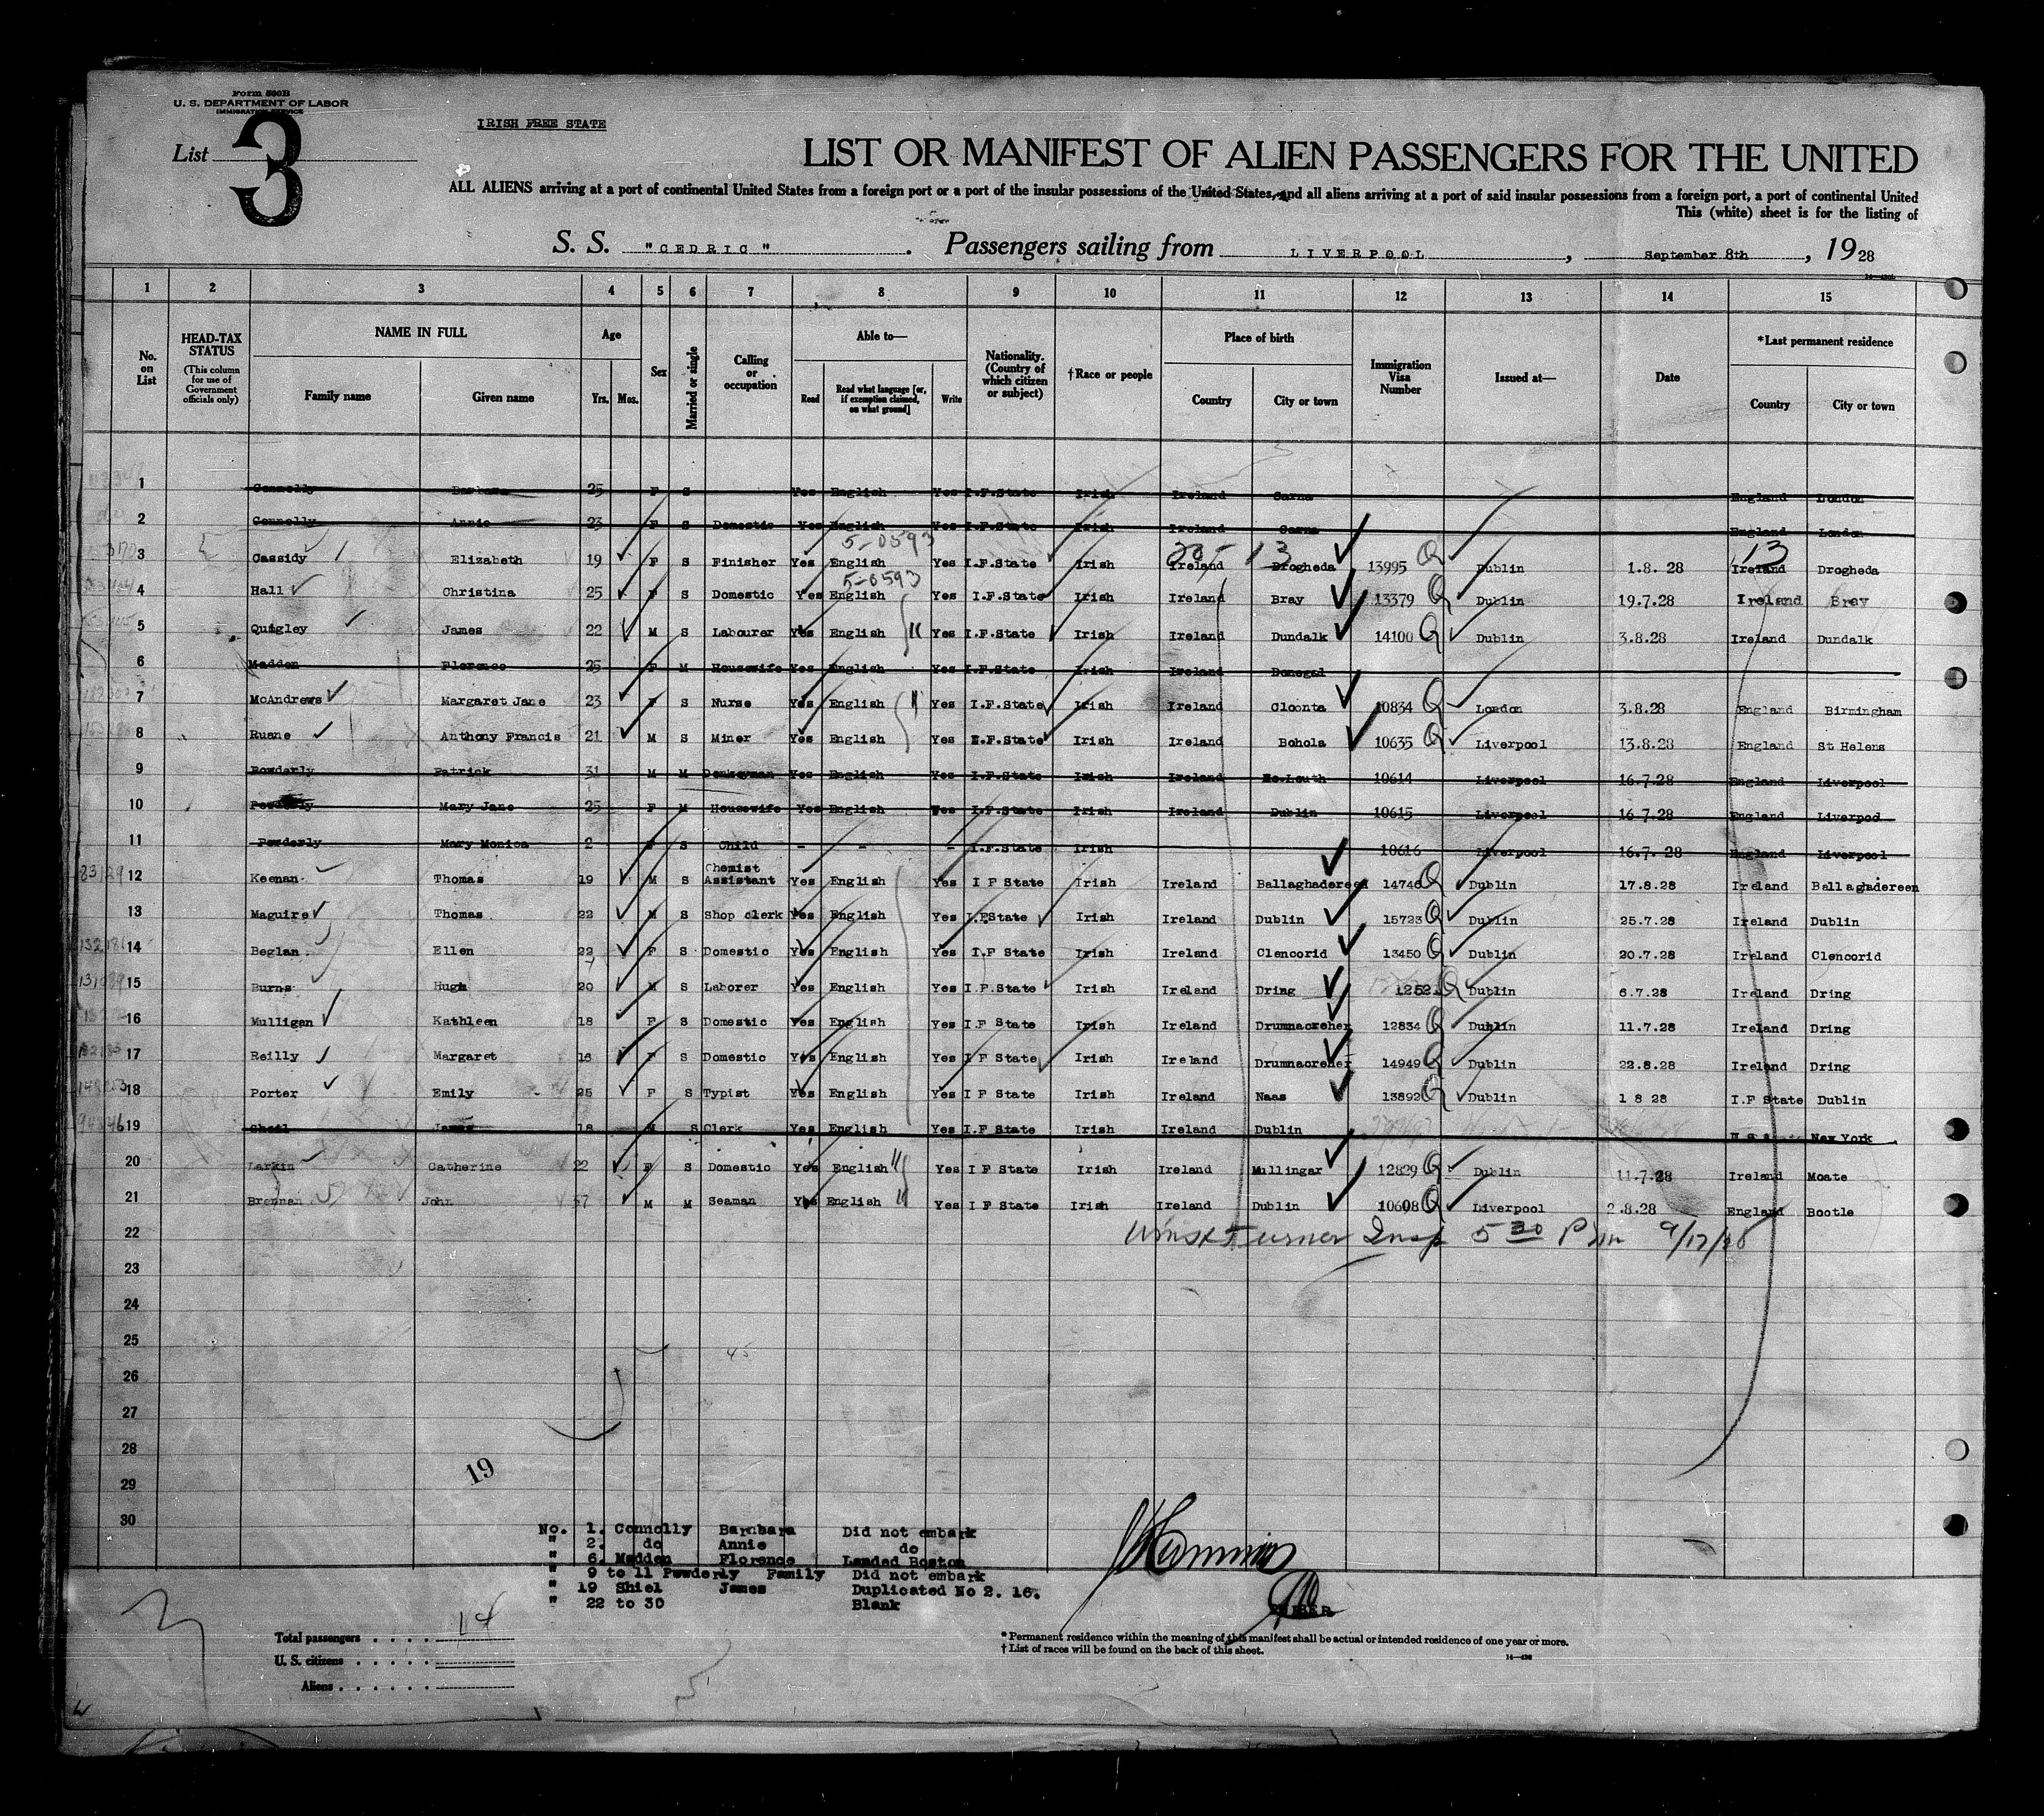 Form 500B
U. S. DEPARTMENT OF LABOR
IMMIGRATION SERVICE
List 3
IRISH FREE STATE
LIST OR MANIFEST OF ALIEN PASSENGERS FOR THE UNITED
ALL ALIENS arriving at a port of continental United States from a foreign port or a port of the insular possessions of the United States, and all aliens arriving at a port of said insular possessions from a foreign port, a port of continental United
This (white) sheet is for the listing of
S. S. "CEDRIC" . Passengers sailing from LIVERPOOL , September 8th , 1928
1 2 3 4 5 6 7 8 9 10 11 12 13 14 15
No. on List
HEAD-TAX STATUS
(This column for use of Government officials only)
NAME IN FULL
Family name Given name
Age
Yrs. Mos.
Sex
Married or single
Calling or occupation
Able to—
Read Read what language [or, if exemption claimed, on what ground] Write
Nationality. (Country of which citizen or subject)
†Race or people
Place of birth
Country City or town
Immigration Visa Number
Issued at—
Date
*Last permanent residence
Country City or town
1 Connolly Barbara 25 F S Yes English Yes I.F.State Irish Ireland Carna England London
2 Connolly Annie 23 F S Domestic Yes English Yes I.F.State Irish Ireland Carna England London
5-0593 13 13
3 Cassidy Elizabeth 19 F S Finisher Yes English Yes I.F.State Irish Ireland Drogheda 13995 Q Dublin 1.8. 28 Ireland Drogheda
5-0593
4 Hall Christina 25 F S Domestic Yes English Yes I.F.State Irish Ireland Bray 13379 Q Dublin 19.7.28 Ireland Bray
5 Quigley James 22 M S Labourer Yes English Yes I.F.State Irish Ireland Dundalk 14100 Q Dublin 3.8.28 Ireland Dundalk
6 Madden Florence 25 F M Housewife Yes English Yes I.F.State Irish Ireland Donegal
7 McAndrews Margaret Jane 23 F S Nurse Yes English Yes I.F.State Irish Ireland Cloonta 10834 Q London 3.8.28 England Birmingham
8 Ruane Anthony Francis 21 M S Miner Yes English Yes I.F.State Irish Ireland Bohola 10635 Q Liverpool 13.8.28 England St Helens
9 Powderly Patrick 31 M M Donkeyman Yes English Yes I.F.State Irish Ireland Co.Louth 10614 Liverpool 16.7.28 England Liverpool
10 Powderly Mary Jane 25 F M Housewife Yes English Yes I.F.State Irish Ireland Dublin 10615 Liverpool 16.7.28 England Liverpool
11 Powderly Mary Monica 2 F S Child - - - I.F.State Irish 10616 Liverpool 16.7. 28 England Liverpool
12 Keenan Thomas 19 M S Chemist Assistant Yes English Yes I F State Irish Ireland Ballaghadereen 14746 Q Dublin 17.8.28 Ireland Ballaghadereen
13 Maguire Thomas 22 M S Shop clerk Yes English Yes I.FState Irish Ireland Dublin 15723 Q Dublin 25.7.28 Ireland Dublin
14 Beglan Ellen 22 F S Domestic Yes English Yes I.F State Irish Ireland Clencorid 13450 Q Dublin 20.7.28 Ireland Clencorid
15 Burns Hugh 20 M S Laborer Yes English Yes I.F.State Irish Ireland Dring Q Dublin 6.7.28 Ireland Dring
16 Mulligan Kathleen 18 F S Domestic Yes English Yes I.F State Irish Ireland Drumnacreher 12834 Q Dublin 11.7.28 Ireland Dring
17 Reilly Margaret 18 F S Domestic Yes English Yes I F State Irish Ireland Drumnacreher 14949 Q Dublin 22.8.28 Ireland Dring
18 Porter Emily 25 F S Typist Yes English Yes I F State Irish Ireland Naas 13892 Q Dublin 1 8 28 I.F State Dublin
19 Sheil James 18 M S Clerk Yes English Yes I.F State Irish Ireland Dublin New York
20 Larkin Catherine 22 F S Domestic Yes English Yes I F State Irish Ireland Mullingar 12829 Q Dublin 11.7.28 Ireland Moate
21 Brennan John 37 M M Seaman Yes English Yes I F State Irish Ireland Dublin 10608 Q Liverpool 2.8.28 England Bootle
22 Turner Insp 5 30 Pm 9/17/28
23
24
25
26
27
28
29
30
19
No. 1. Connolly Barnbara Did not embark
" 2. do Annie do
" 6. Madden Florence Landed Boston
" 9 to 11 Powderly Family Did not embark
" 19 Shiel James Duplicated No 2. 16.
" 22 to 30 Blank
Total passengers . . . . 14
U. S. citizens . . . . .
Aliens . . . . . .
* Permanent residence within the meaning of this manifest shall be actual or intended residence of one year or more.
† List of races will be found on the back of this sheet.